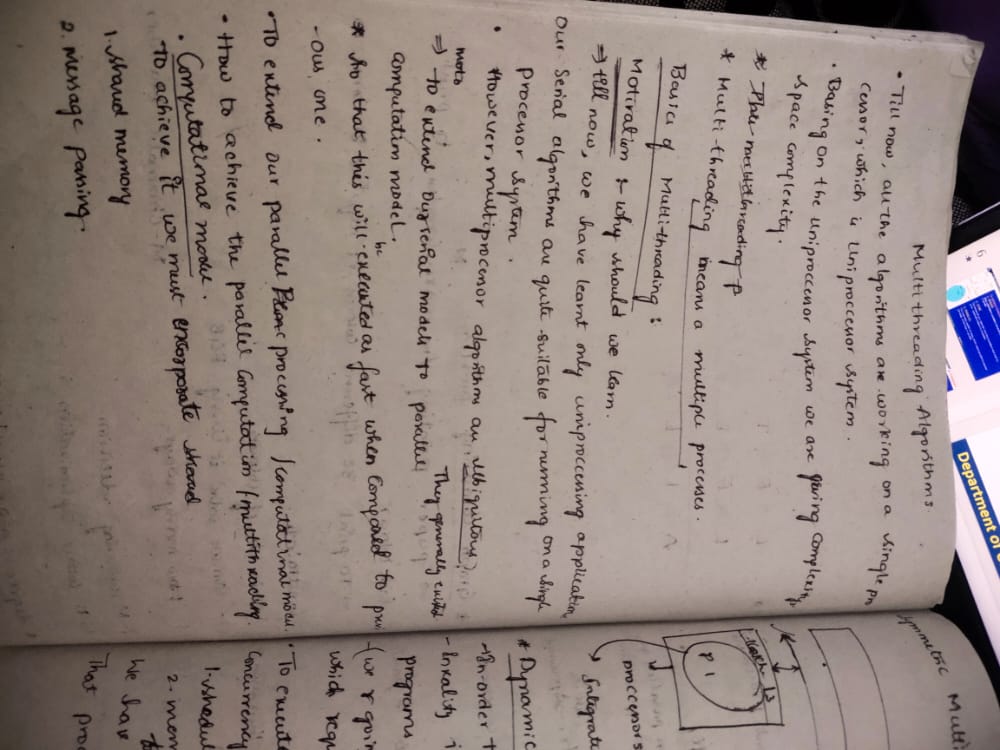 Department of
6
Multithreading Algorithms.
• Till now, all the algorithms are working on a single pro
cessor, which is Uniproccenor system.
• Basing on the Uniproccenor system we are giving complexity,
space complexity.
* Multi-threading means a multiple processes.
Basics of Multi-threading:
Motivation :- why should we learn.
⇒ till now, we have learnt only uniproccessing application
Our Serial algorithms are quite suitable for running on a single
Procenor system.
• However, multiprocenor algorithms are Ubiquitous?
They generally existed
moto
⇒ to extend our serial models to parallel
computation model.
* So that this will be executed as fast when compared to previ
-ous one.
• To extend our parallel processing / computational model.
• How to achieve the parallel computation / multithreading.
• Computational model.
To achieve it we must encorporate shared
1. shared memory
2. Message passing.
Symmetric Multi
P1
proccenors
Integrate
* Dynamic
→ In-order t
- Locality i
programs
(we r goin
which requ
• To execute
Concurrency
1. shedul
2. mem
We have
That proc